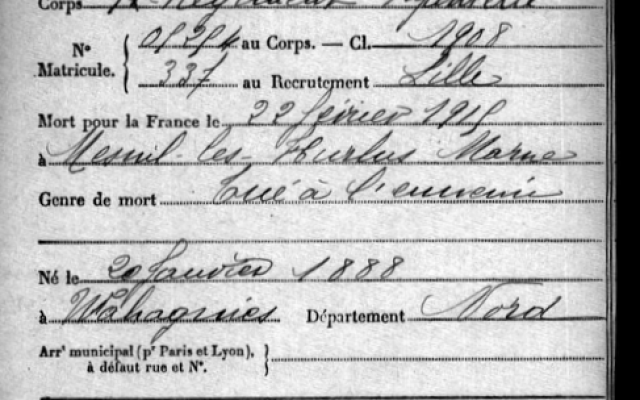 Corps Régiment d'Infanterie
N° 05254 au Corps. — Cl. 1908
Matricule. 337 au Recrutement Lille
Mort pour la France le 22 février 1915
à Mesnil-les-Hurlus Marne
Genre de mort Tué à l'ennemi
Né le 20 Janvier 1888
à Wahagnies Département Nord
Arrᵗ municipal (pʳ Paris et Lyon),
à défaut rue et N°.